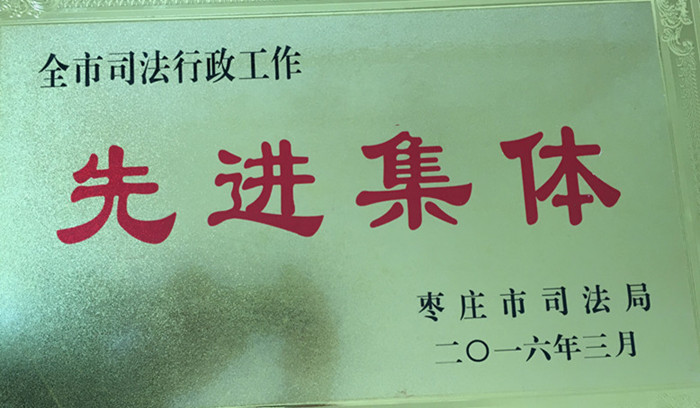 全市司法行政工作
先进集体
枣庄市司法局
二〇一六年三月